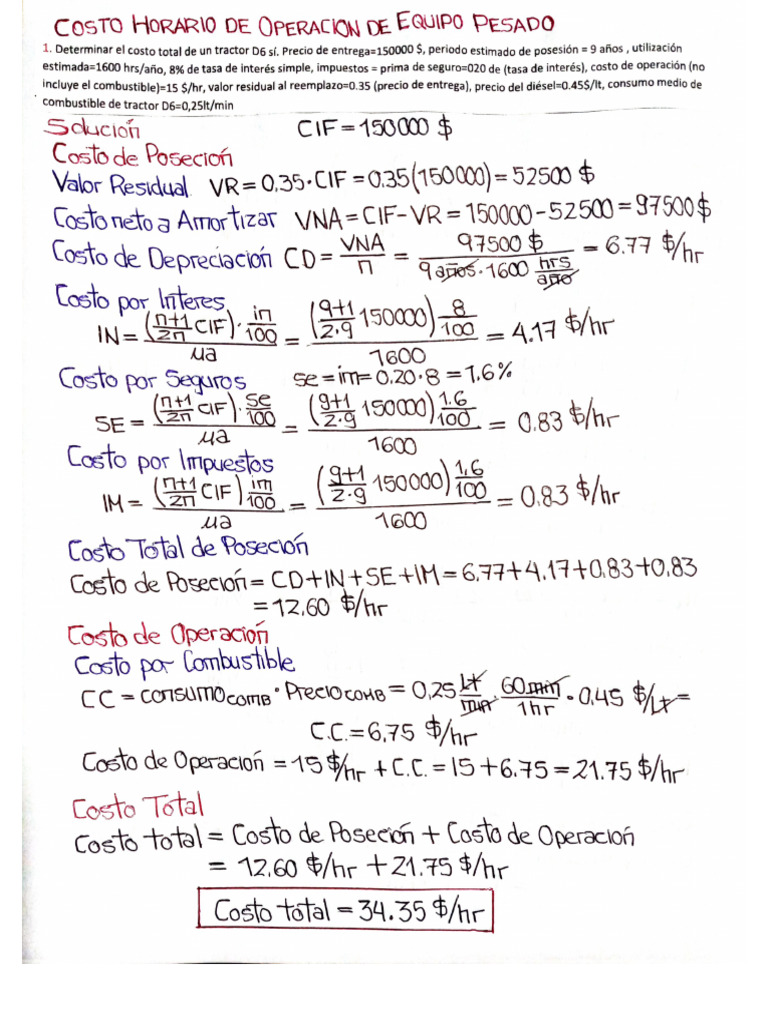 COSTO HORARIO DE OPERACION DE EQUIPO PESADO
1. Determinar el costo total de un tractor D6 sí. Precio de entrega=150000 $, periodo estimado de posesión = 9 años , utilización
estimada=1600 hrs/año, 8% de tasa de interés simple, impuestos = prima de seguro=020 de (tasa de interés), costo de operación (no
incluye el combustible)=15 $/hr, valor residual al reemplazo=0.35 (precio de entrega), precio del diésel=0.45$/lt, consumo medio de
combustible de tractor D6=0,25lt/min
Solución CIF = 150000 $
Costo de Poseción
Valor Residual VR = 0,35·CIF = 0.35(150000) = 52500 $
Costo neto a Amortizar VNA = CIF-VR = 150000-52500 = 97500$
Costo de Depreciación CD = VNA/n = 97500 $/(9 años·1600 hrs/año) = 6.77 $/hr
Costo por Interes
IN = ((n+1/2n CIF)·in/100)/ua = ((9+1/2·9 150000) 8/100)/1600 = 4.17 $/hr
Costo por Seguros se = im = 0.20·8 = 1.6%
SE = ((n+1/2n CIF)·se/100)/ua = ((9+1/2·9 150000) 1.6/100)/1600 = 0.83 $/hr
Costo por Impuestos
IM = ((n+1/2n CIF) im/100)/ua = ((9+1/2·9 150000) 1,6/100)/1600 = 0,83 $/hr
Costo Total de Poseción
Costo de Poseción = CD+IN+SE+IM = 6,77+4.17+0.83+0.83
= 12,60 $/hr
Costo de Operación
Costo por Combustible
CC = consumo COMB · Precio COMB = 0,25 Lt/min · 60min/1hr · 0,45 $/Lt =
C.C. = 6,75 $/hr
Costo de Operación = 15 $/hr + C.C. = 15 + 6.75 = 21.75 $/hr
Costo Total
Costo total = Costo de Poseción + Costo de Operación
= 12,60 $/hr + 21.75 $/hr
Costo total = 34.35 $/hr